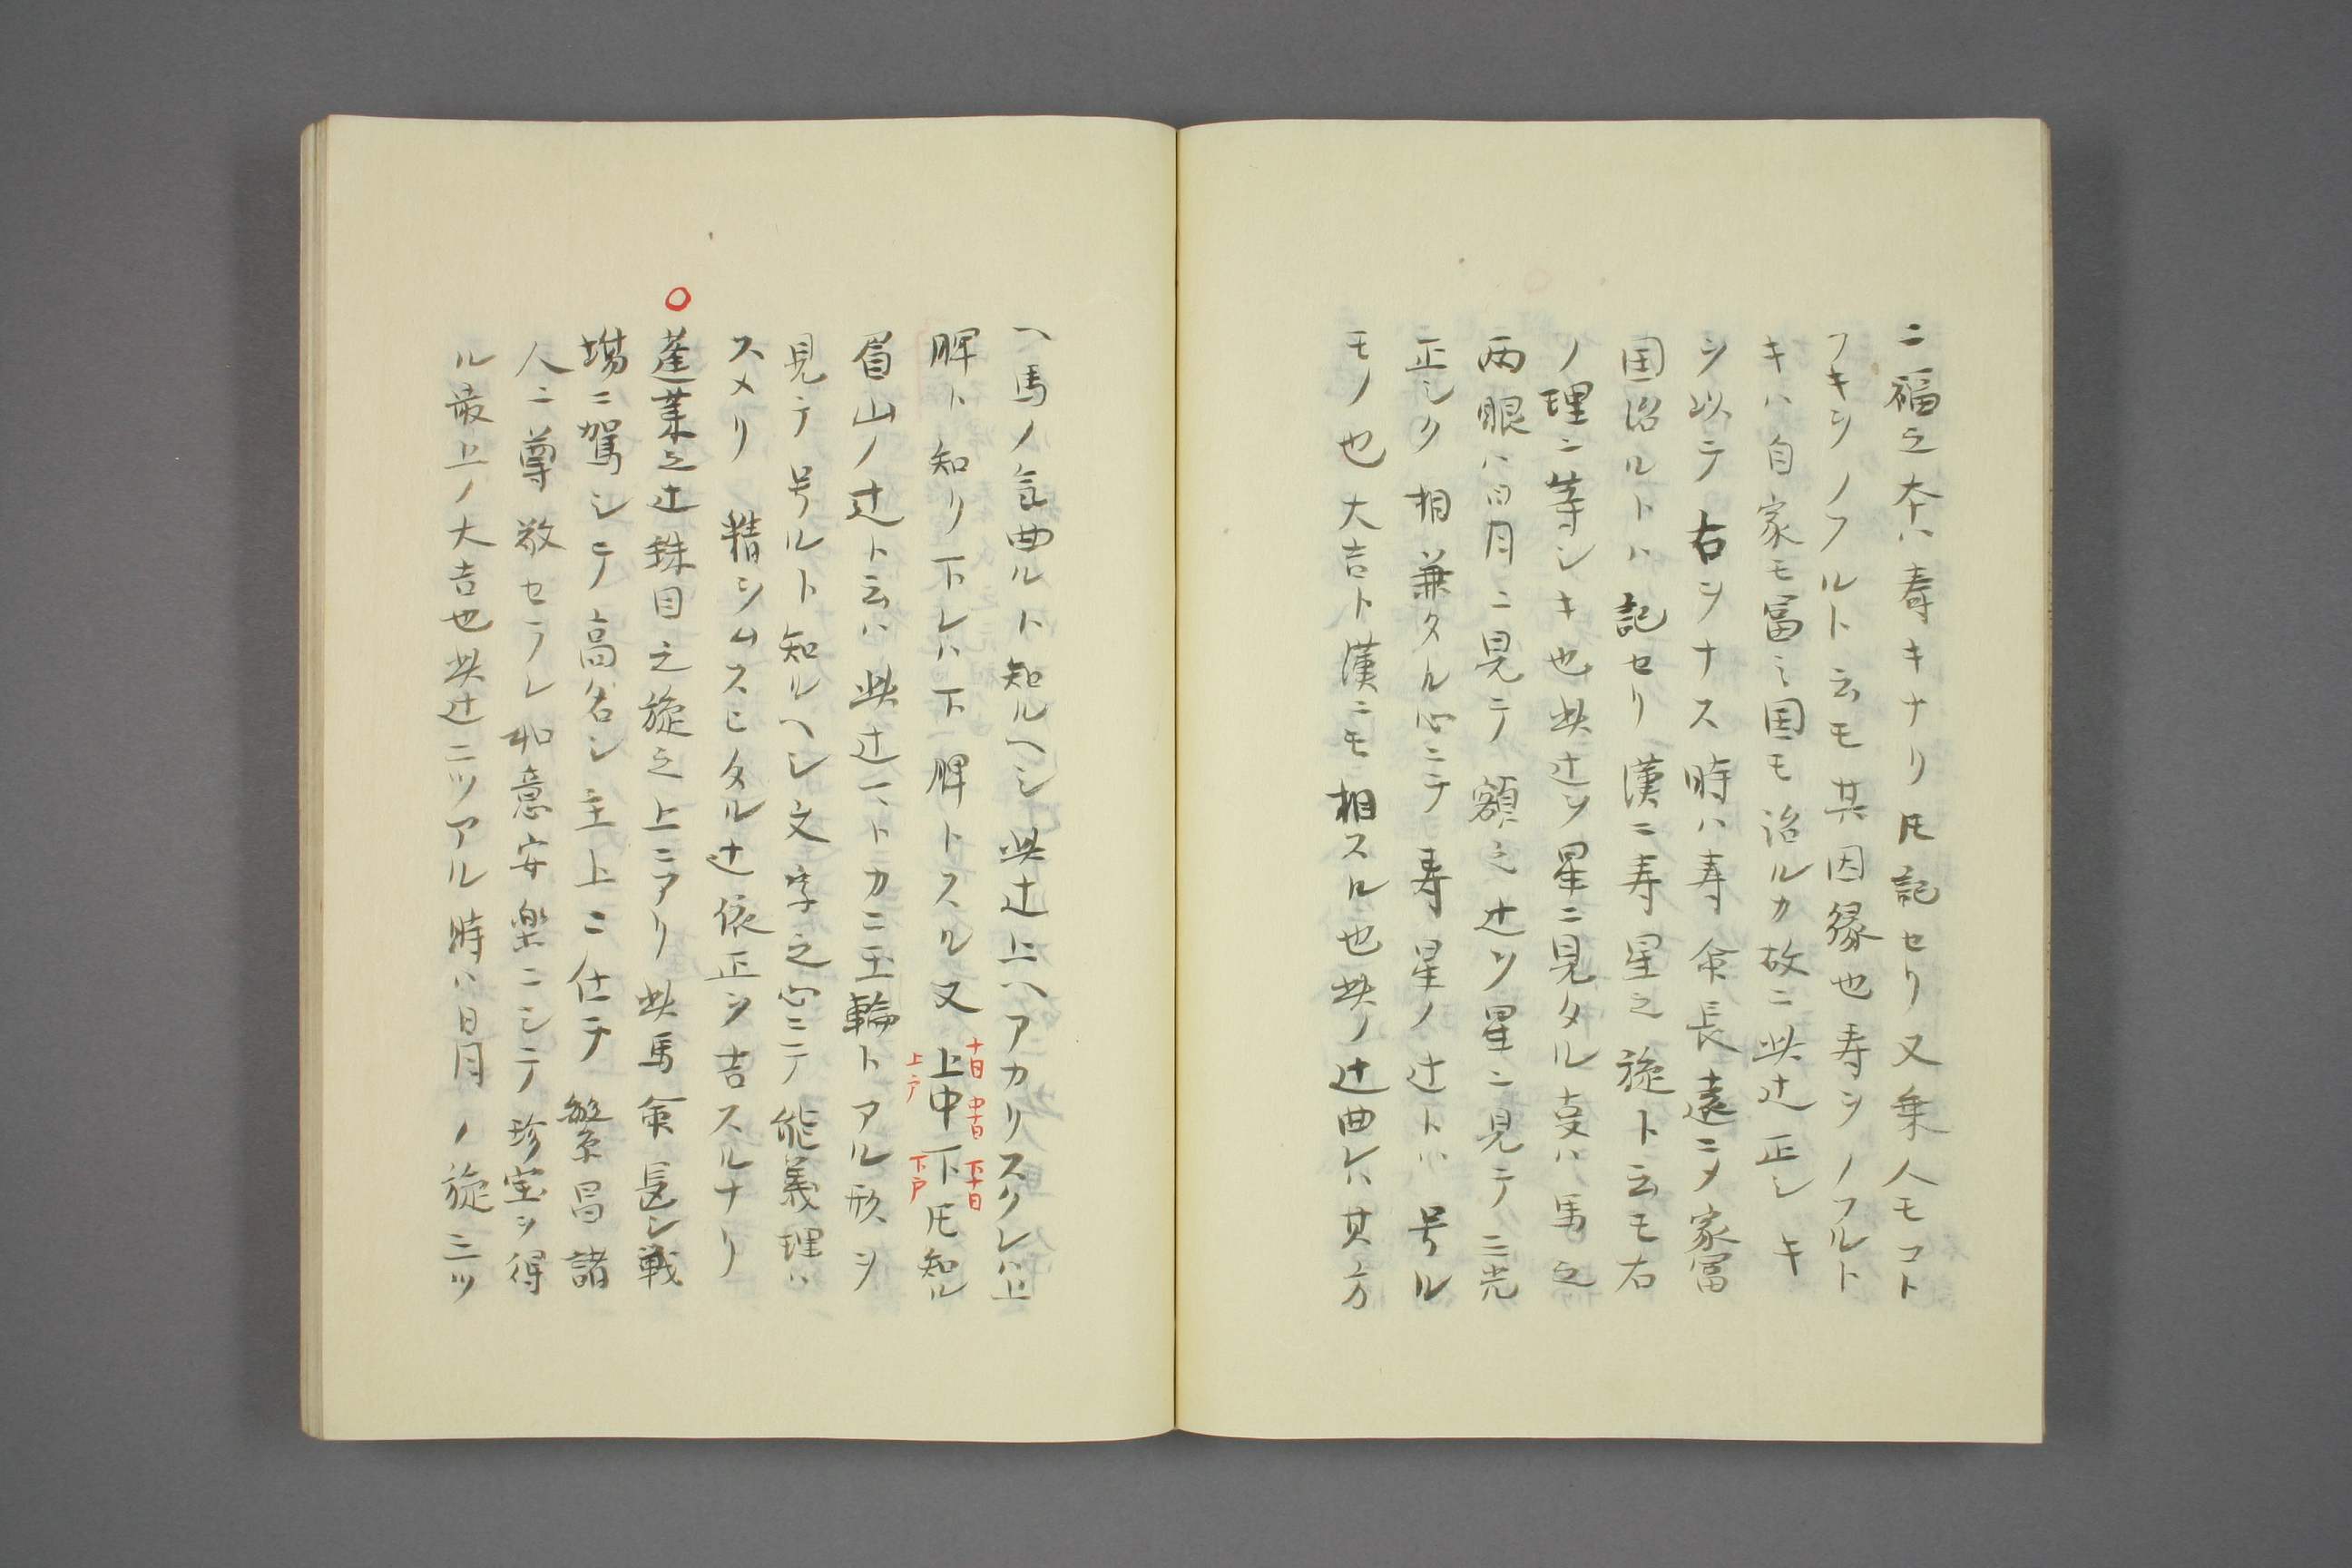 ニ福之本ハ寿キナリ𪜈記セリ又乗人モコト
フキヲノフルト云モ其因縁也寿ヲノフルト
キハ自家モ冨ミ国モ治ルカ故ニ此辻正シキ
ヲ以テ右ヲナス時ハ寿命長遠ニメ家冨
国治ルトハ記セリ漢ニ寿星之旋ト云モ右
ノ理ニ等シキ也此辻ヲ星ニ見タル叓ハ馬之
両眼ハ日月ニ見テ額之辻ヲ星ニ見テ三光
正シク相兼タル心ニテ寿星ノ辻トハ号ル
モノ也大吉ト漢ニモ相スル也此ノ辻曲レハ其方
ヘ馬ノ気曲ルト知ルヘシ此辻上ヘアカリスクレハ上
脾ト知リ下レハ下脾トスル又上中下𪜈知ル
十目 中十目 下十目
上戸 下戸
眉山ノ辻ト云ハ此辻一トカ二玉輪トアル形ヲ
見テ号ルト知ルヘシ文字之心ニテ能義理ハ
スメリ精シムスヒタル辻依正ヲ吉スルナリ
○蓬莱之辻珠目之旋之上ニアリ此馬命長シ戦
場ニ駕シテ高名シ主上ニ仕テ繁昌諸
人ニ尊敬セラレ如意安楽ニシテ珍宝ヲ得
ル最上ノ大吉也此辻二ツアル時ハ日月ノ旋三ツ